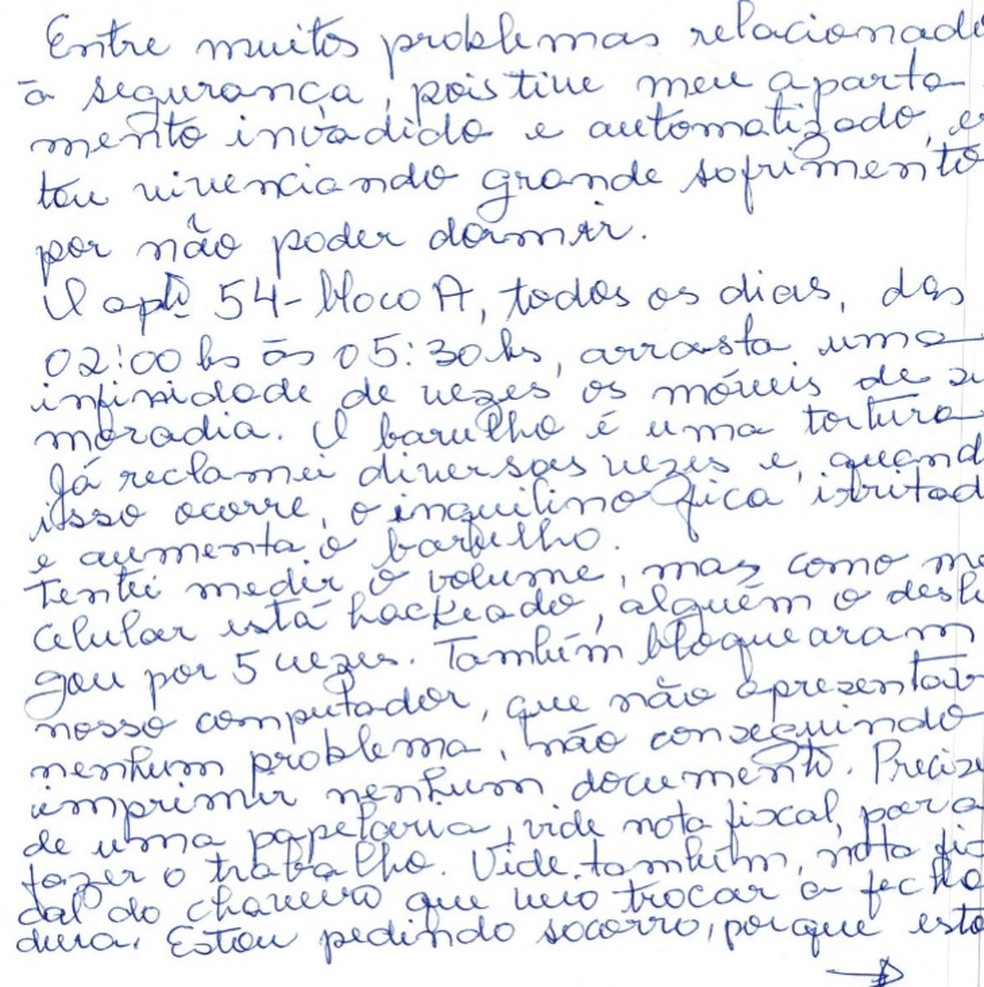 Entre muitos problemas relacionado
à segurança, pois tive meu aparta-
mento invadido e automatizado, es
tou vivenciando grande sofrimento
por não poder dormir.
O aptº 54- bloco A, todos os dias, das
02:00 hs às 05:30 hs, arrasta uma
infinidade de vezes os móveis de su
moradia. O barulho é uma tortura
Já reclamei diversas vezes e, quand
isso ocorre, o inquilino fica irritad
e aumenta o barulho.
Tentei medir o volume, mas como me
celular está hackeado, alguém o desli
gou por 5 vezes. Também bloquearam
nosso computador, que não apresentav
nenhum problema, não conseguindo
imprimir nenhum documento. Precise
de uma papelaria, vide nota fiscal, para
fazer o trabalho. Vide, também, nota fis
cal do chaveiro que veio trocar a fecha
dura. Estou pedindo socorro, porque esto
→